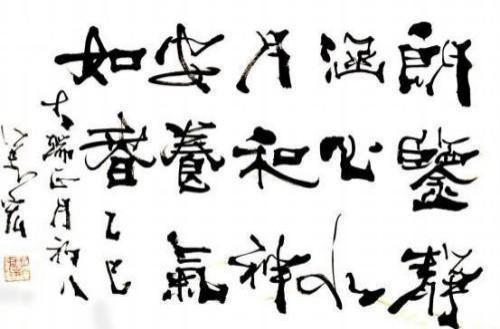 朗鑒靜
涵心水
月和神
安養氣
如春乙巳
端正月初八